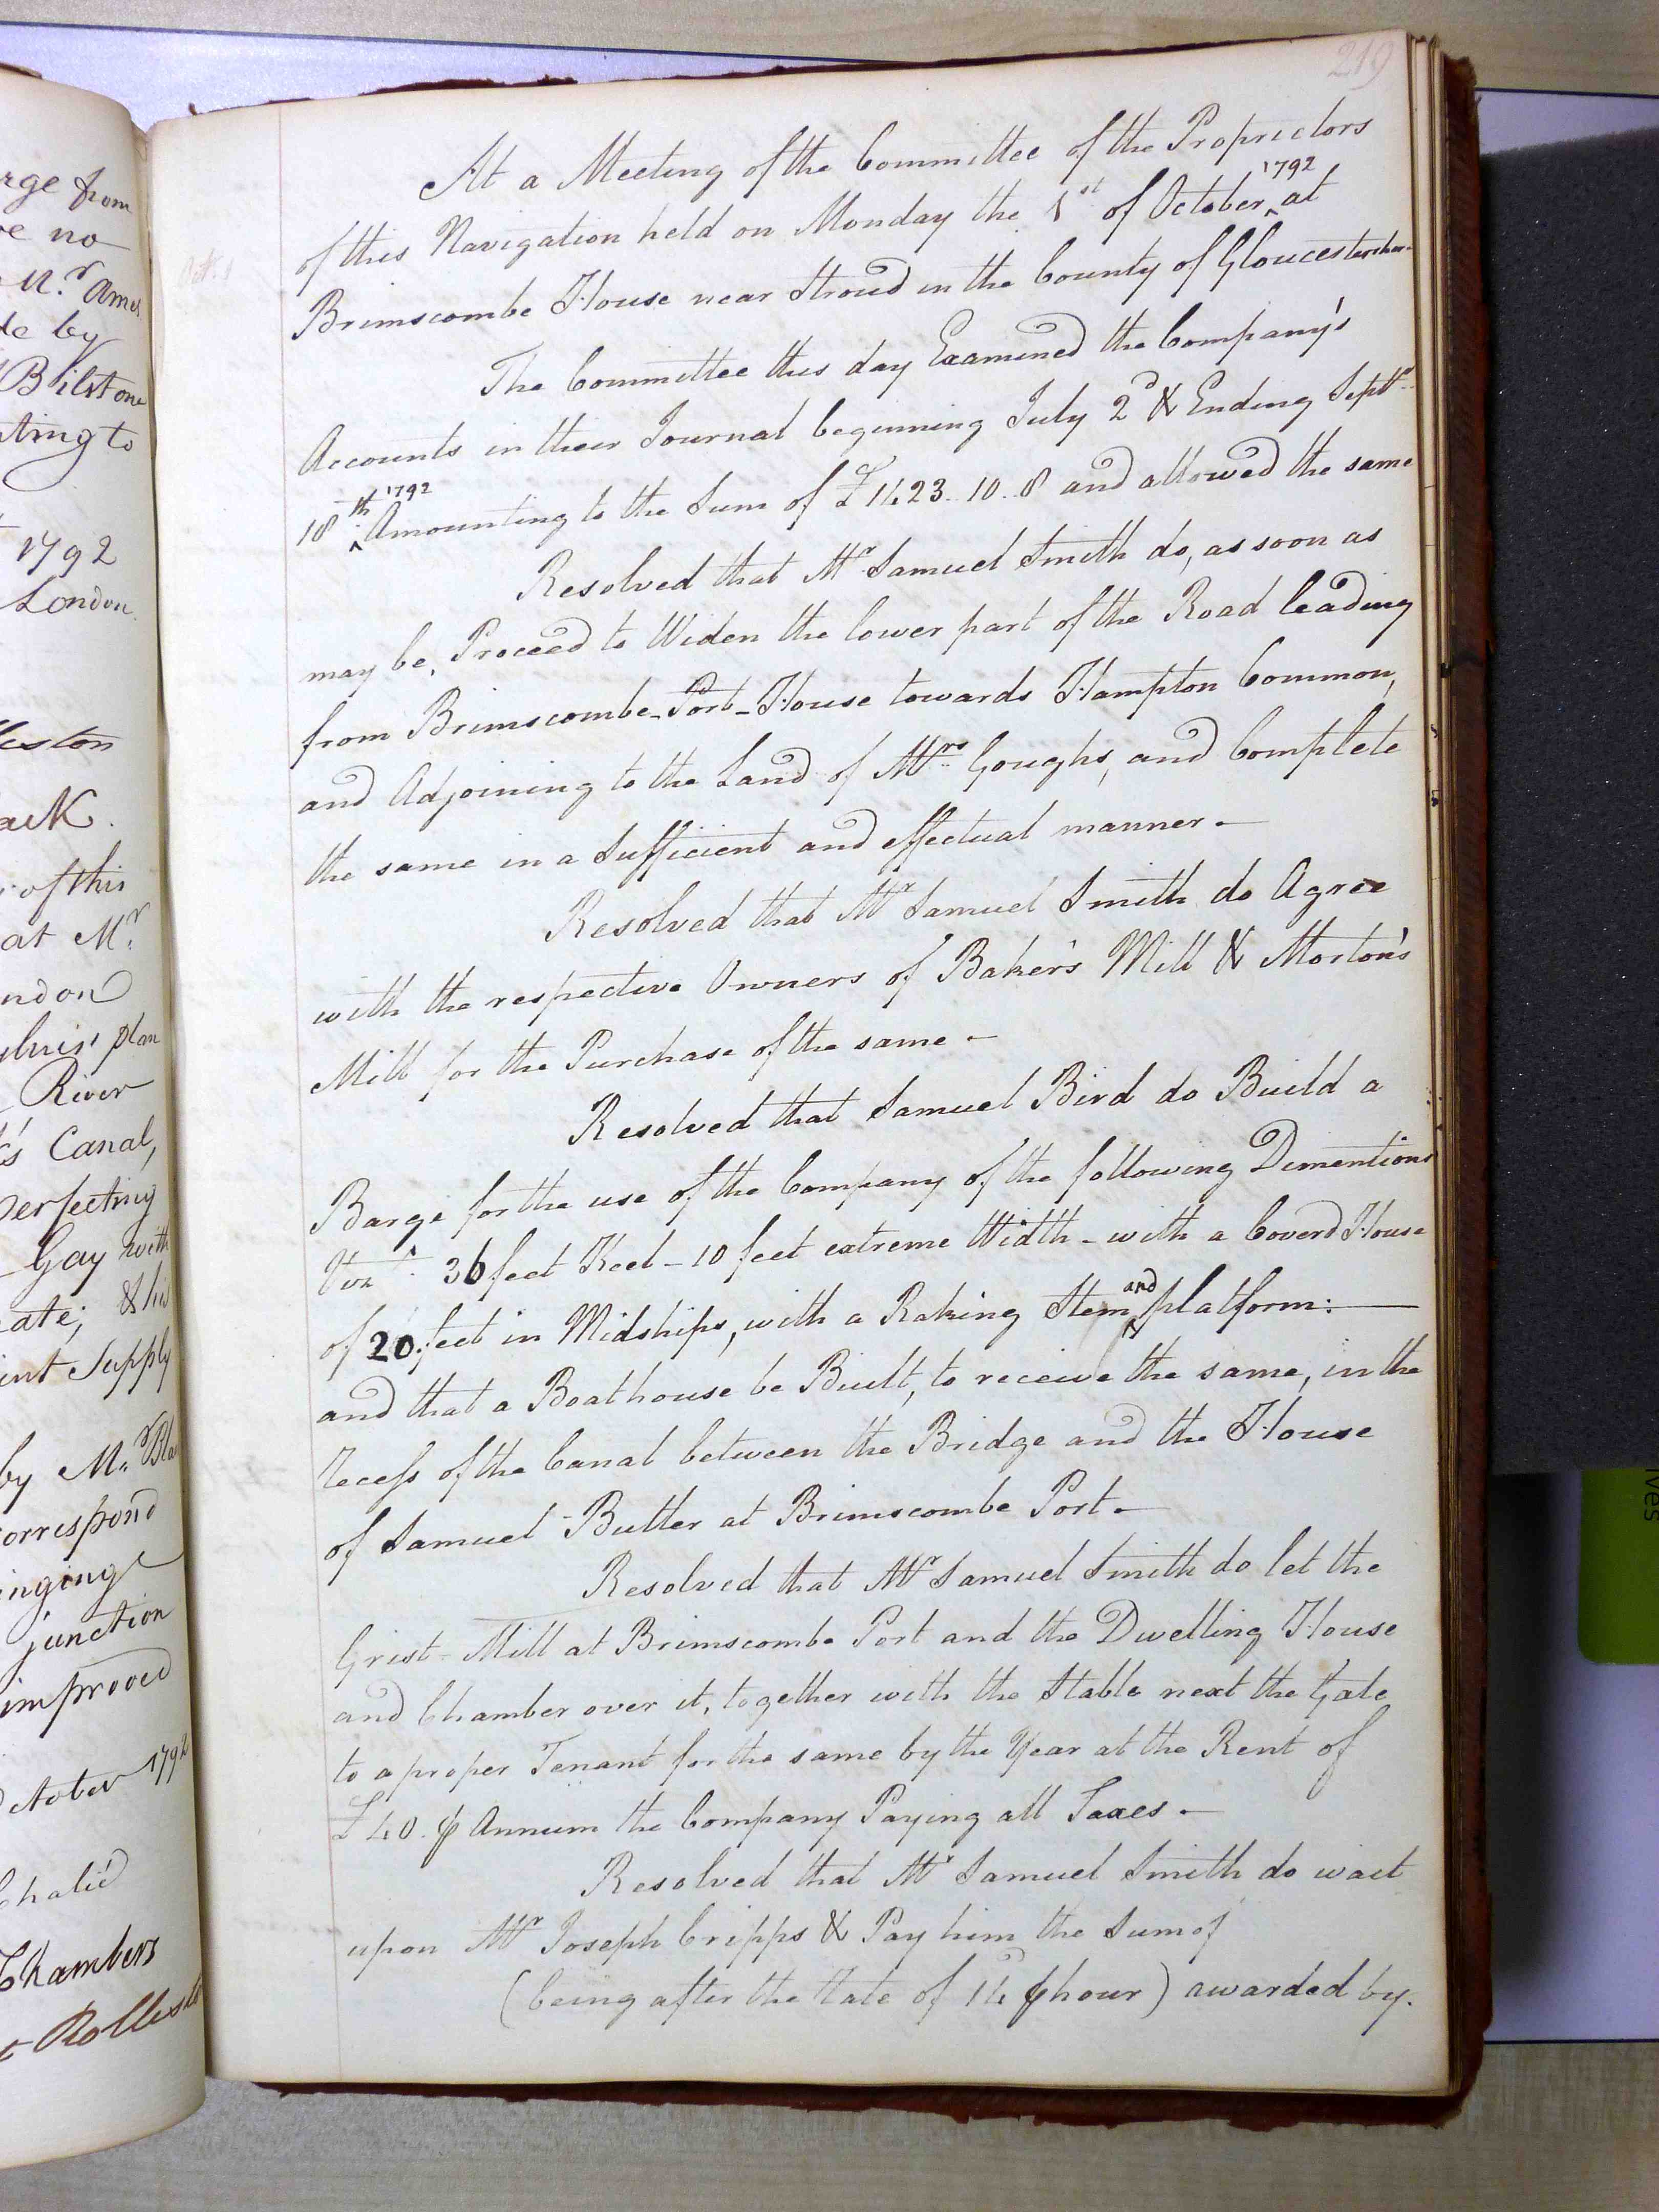 rge from
e no
Mr. Ames
de by
Bilstone
ating to
1792
London
leston
ack.
of this
at Mr.
ndon
plan
River
's Canal,
perfecting
Gay with
cate; & his
ent Supply
by Mr. Bla
orrespond
inging
junction
improved
October 1792
Chalié
Chambers
Rolles
219
Oct. 1
At a Meeting of the Committee of the Proprietors
of this Navigation held on Monday the 1st of October 1792 at
Brimscombe House near Stroud in the County of Gloucestershire
The Committee this day Examined the Company's
Accounts in their Journal beginning July 2d & Ending Septr
18th 1792 Amounting to the Sum of £1423.10.8 and allowed the same
Resolved that Mr Samuel Smith do, as soon as
may be, Proceed to Widen the lower part of the Road leading
from Brimscombe-Port-House towards Hampton Common,
and Adjoining to the Land of Mrs Goughs, and Complete
the same in a Sufficient and effectual manner.
Resolved that Mr Samuel Smith do Agree
with the respective Owners of Baker's Mill & Morton's
Mill for the Purchase of the same -
Resolved that Samuel Bird do Build a
Barge for the use of the Company of the following Dimentions
Vizt. 36 feet Keel - 10 feet extreme Width - with a Coverd House
of 20 feet in Midships, with a Raking Stem and platform:
and that a Boathouse be Built, to receive the same, in the
recess of the Canal between the Bridge and the House
of Samuel Butler at Brimscombe Port.
Resolved that Mr Samuel Smith do let the
Grist-Mill at Brimscombe Port and the Dwelling House
and Chamber over it, together with the Stable next the Gate
to a proper Tenant for the same by the Year at the Rent of
£40. ⅌ Annum the Company Paying all Taxes.
Resolved that Mr Samuel Smith do wait
upon Mr Joseph Cripps & Pay him the Sum of
(being after the Rate of 14d ⅌ hour) awarded by.